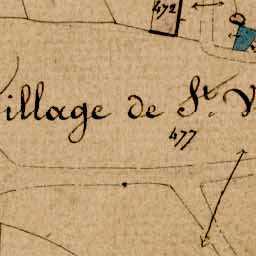 472
illage de St. V
477